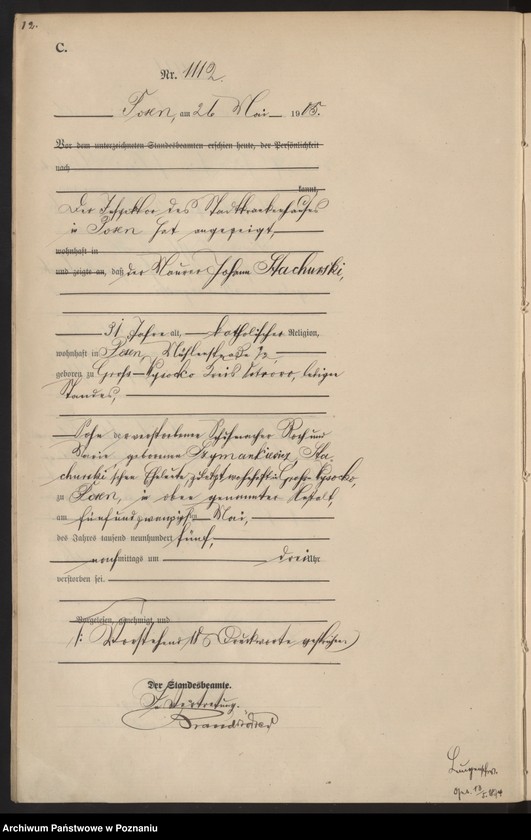 12.
C.
Nr. 1112.
Posen, am 26 Mai 1905.
Vor dem unterzeichneten Standesbeamten erschien heute, der Persönlichkeit
nach
kannt,
Der Inspektor des Stadtkrankenhauses
in Posen hat angezeigt,
wohnhaft in
und zeigte an, daß der Maurer Johann Stachurski,
31 Jahre alt, katholischer Religion,
wohnhaft in Posen, Mühlenstraße
geboren zu Groß-Wysocko Kreis Ostrowo, ledigen
Standes,
Sohn der verstorbenen Schuhmacher Roch und
Marie geborenen Szymankiewicz, Sta-
churski'schen Eheleute, zuletzt wohnhaft in Groß-Wysocko,
zu Posen, in oben genannter Anstalt,
am fünfundzwanzigsten Mai,
des Jahres tausend neunhundert fünf,
nachmittags um drei Uhr
verstorben sei.
Vorgelesen, genehmigt und
Vorstehend Druckworte gestrichen.
Der Standesbeamte.
In Vertretung.
Archiwum Państwowe w Poznaniu